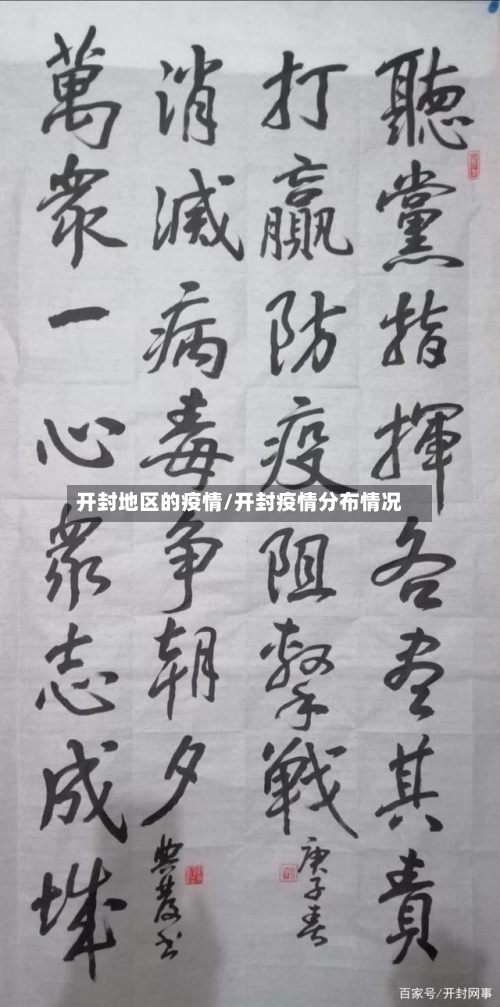 聽黨指揮各盡其責
打贏防疫阻擊戰
庚子春
消滅病毒争朝夕
萬衆一心衆志成城
开封地区的疫情/开封疫情分布情况
百家号/开封网事